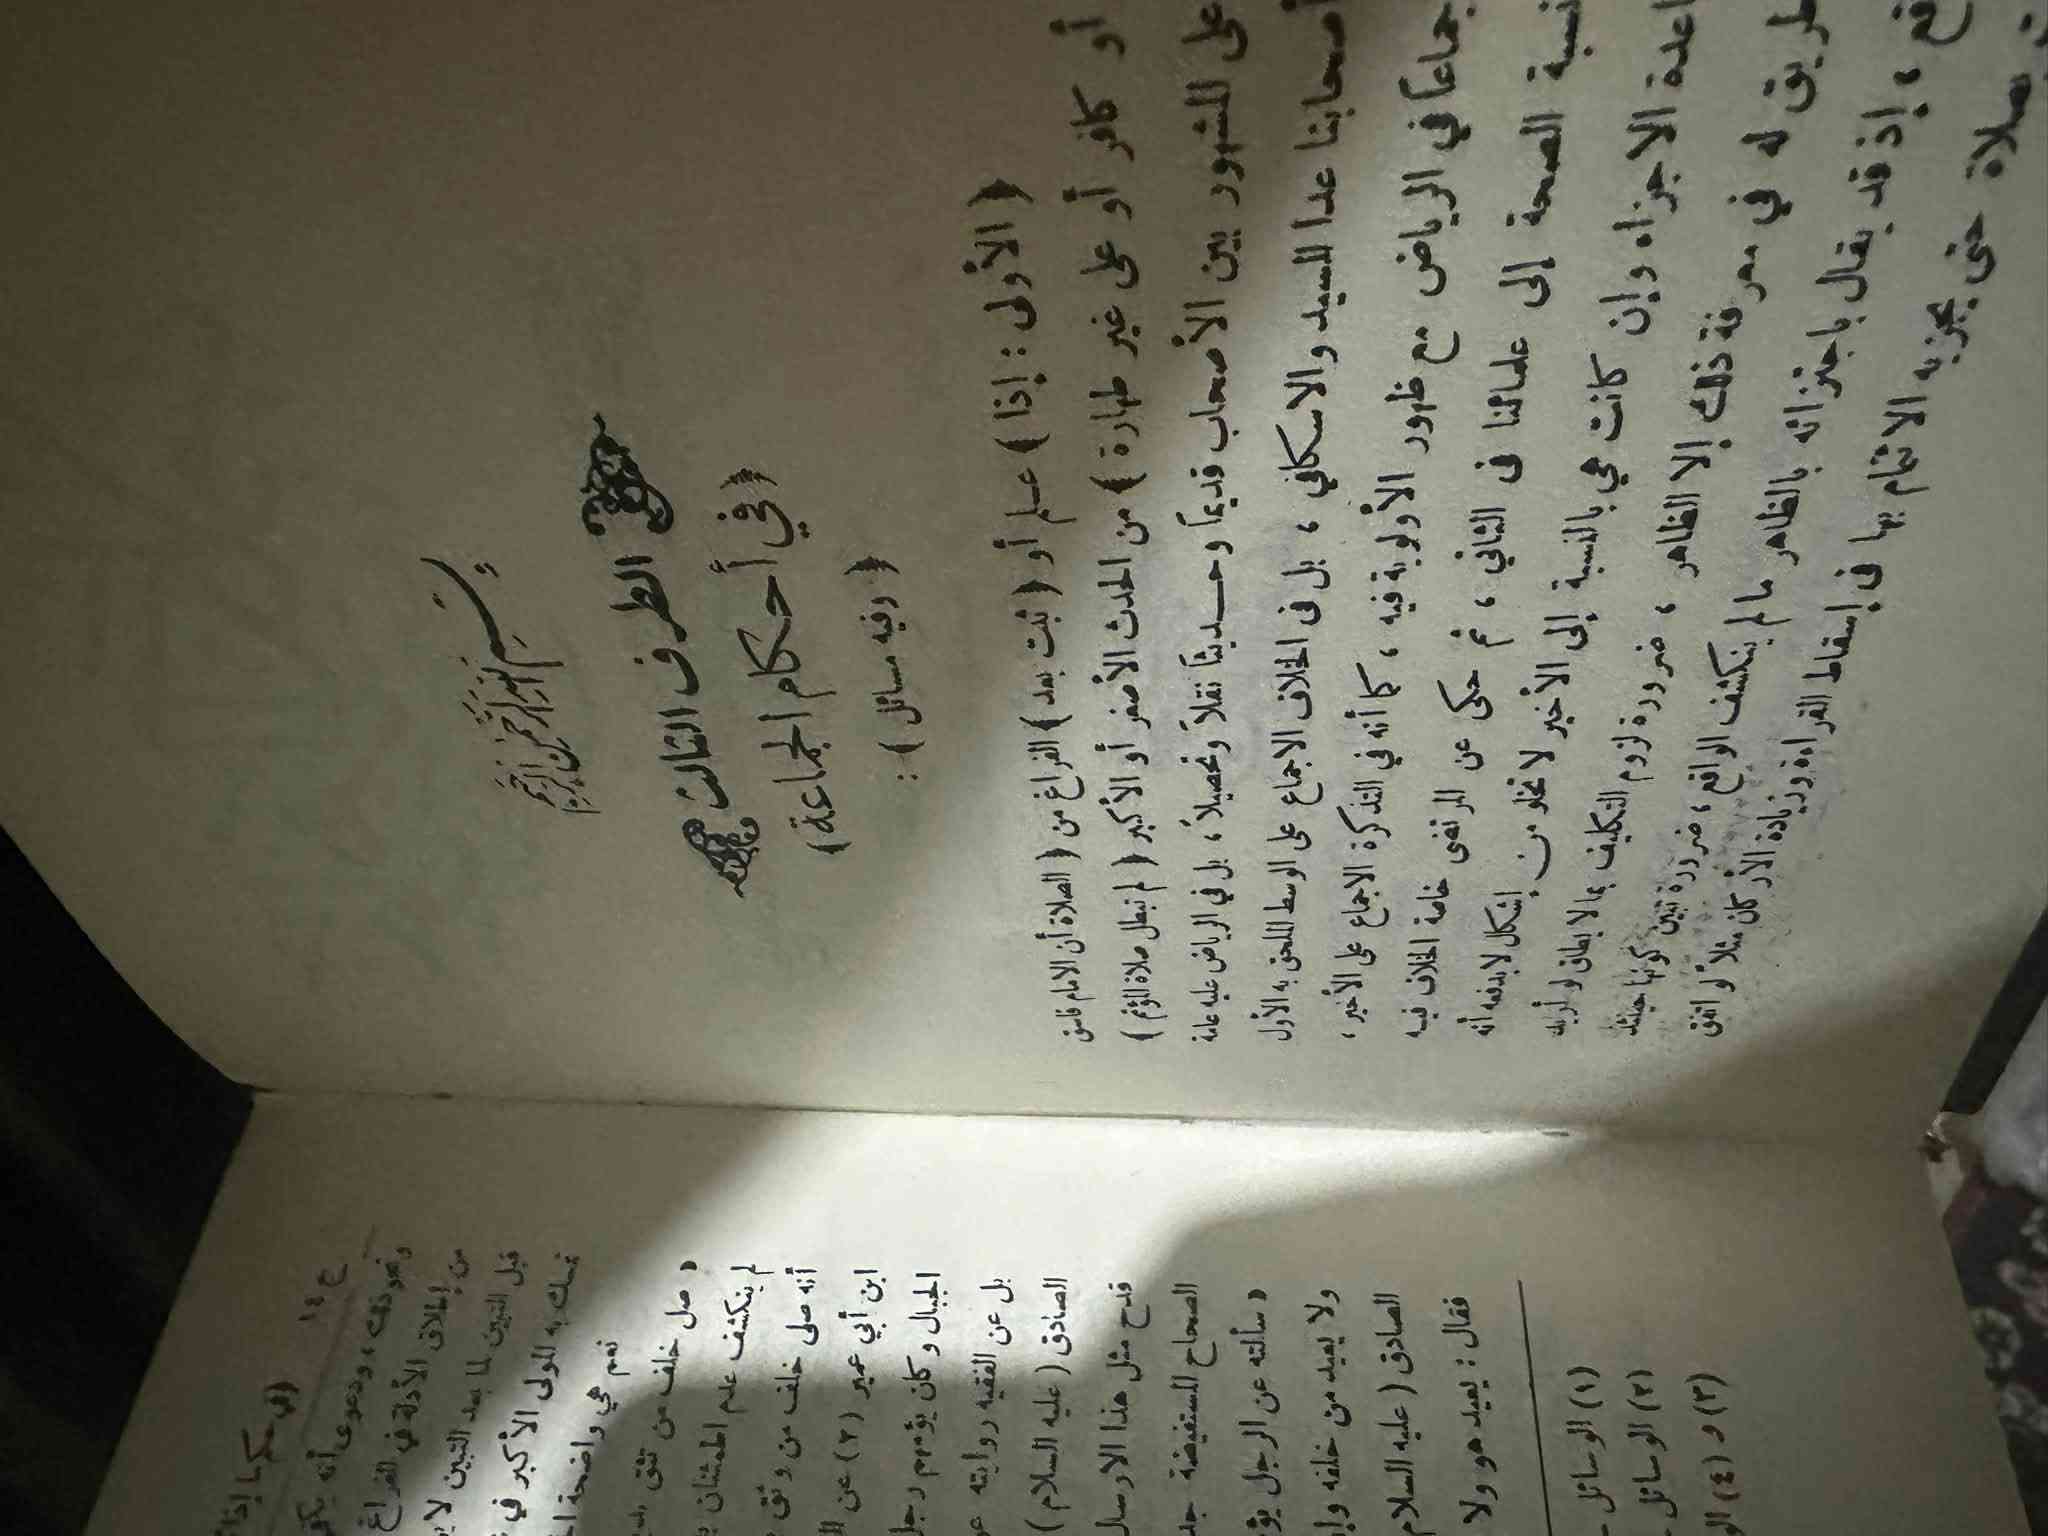 بسم الله الرحمن الرحيم
الطرف الثالث
( في أحكام الجماعة )
( وفيه مسائل ) :
( الأولى : إذا ) علم أو ( ثبت بعد ) الفراغ من ( الصلاة أن الامام فاسق
أو كافر أو على غير طهارة ) من الحدث الأصغر أو الأكبر ( لم تبطل صلاة المؤتم )
على المشهور بين الأصحاب قديماً وحديثاً نقلاً وتحصيلاً ، بل في الرياض عليه عامة
أصحابنا عدا السيد والاسكافي ، بل في الخلاف الاجماع على الوسط الملحق به الأول
في الرياض مع ظهور الأولوية فيه ، كما أنه في التذكرة الاجماع على الأخير ،
نسبة الصحة إلى علمائنا في الثاني ، ثم حكى عن المرتضى خاصة الخلاف فيه
الاجزاء وإن كانت هي بالنسبة إلى الأخير لا تخلو من إشكال لا يدفعه أنه
طريق له في معرفة ذلك إلا الظاهر ، ضرورة لزوم التكليف بما لا يطاق لو أريد
، إذ قد يقال باجتزائه بالظاهر ما لم ينكشف الواقع ، ضرورة تبين كونها حينئذ
صلاة حتى يجزيه الائتمام بها في إسقاط القراءة وزيادة الأركان مثلاً لو اتفق
ج ١٤
ونحو ذلك ، ودعوى أنه
من إطلاق الأدلة في الفراغ
قبل التبين لما بعد التبين
تمسك به المولى الأكبر في
نعم هي واضحة
« صل خلف من تثق
لم ينكشف عدم الوثوق
أنه صلى خلف من وثق
ابن أبي عمير (٢) عن
الجبال وكان يؤمهم رجل
بل عن الفقيه روايته
الصادق ( عليه السلام )
قدح مثل هذا الارسال
الصحاح المستفيضة
« سألته عن الرجل
ولا يعيد من خلفه
الصادق ( عليه السلام
فقال : يعيد هو ولا
(١) الوسائل
(٢) الوسائل
(٣) و (٤)